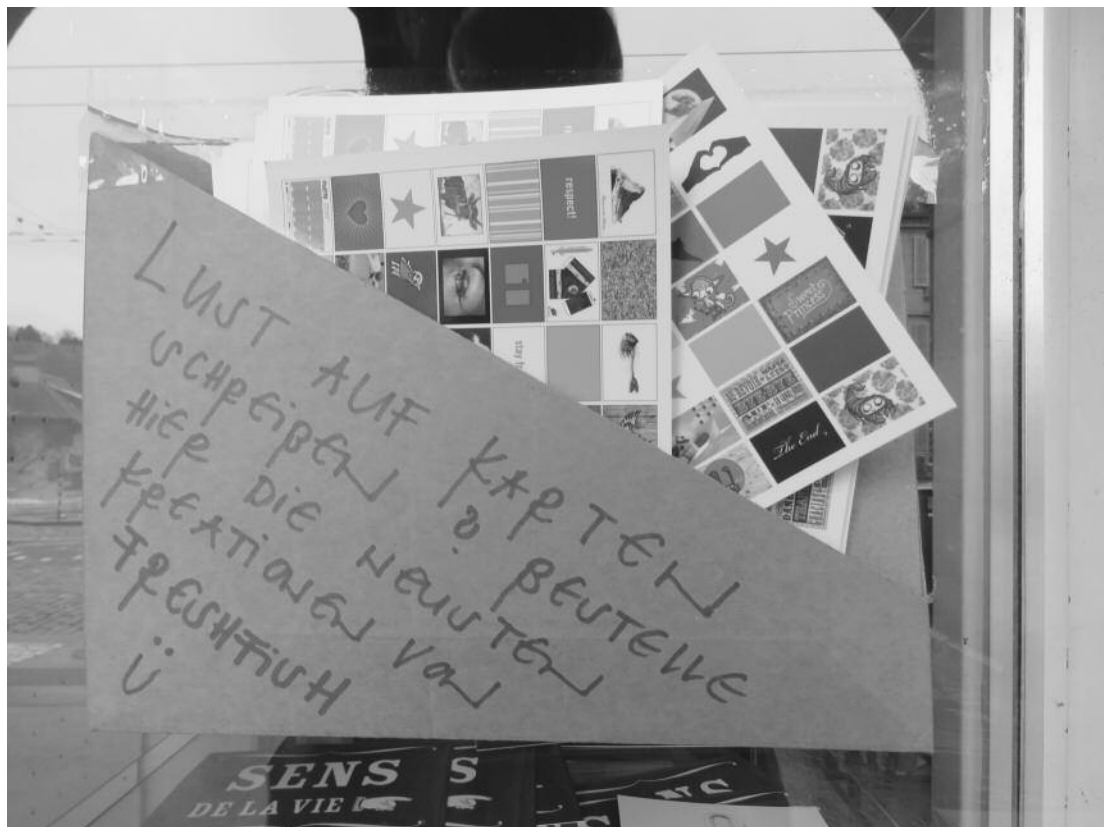 respect!
The End
LUST AUF KARTEN
SCHREIBEN? BESTELLE
HIER DIE NEUSTEN
KREATIONEN VON
FRESHFISH
Ü
SENS
DE LA VIE
S